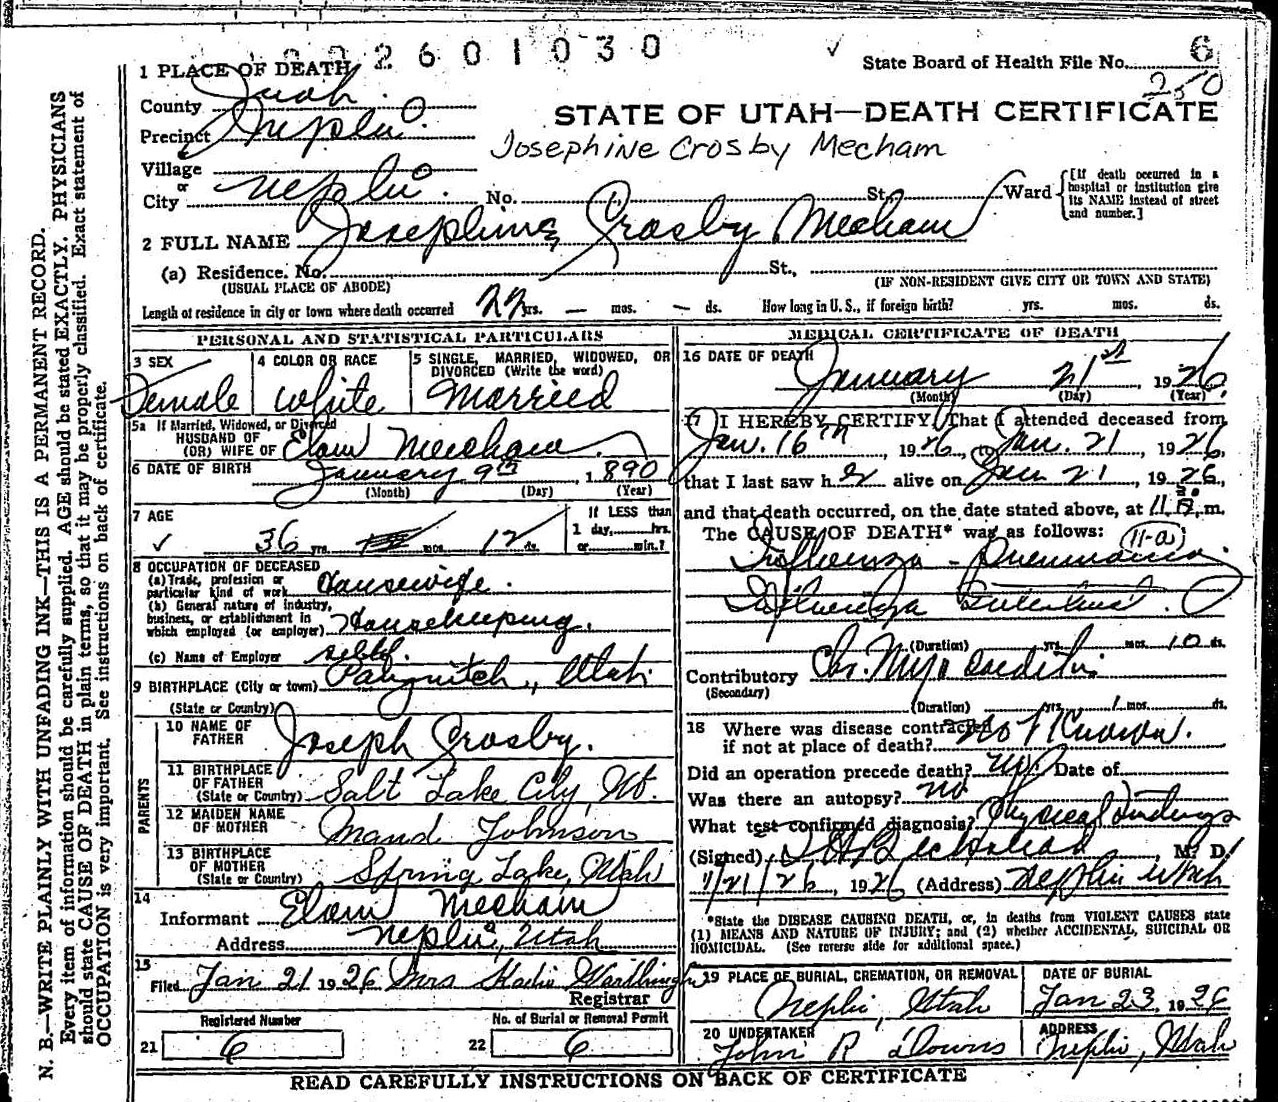 2601030
State Board of Health File No. 6
250
1 PLACE OF DEATH
County Juab.
STATE OF UTAH—DEATH CERTIFICATE
Precinct Nephi.
Josephine Crosby Mecham
Village
or
City Nephi. No. St., Ward [If death occurred in a hospital or institution give its NAME instead of street and number.]
2 FULL NAME Josephine Crosby Mecham
(a) Residence. No. St.,
(USUAL PLACE OF ABODE) (IF NON-RESIDENT GIVE CITY OR TOWN AND STATE)
Length of residence in city or town where death occurred yrs. — mos. — ds. How long in U.S., if foreign birth? yrs. mos. ds.
PERSONAL AND STATISTICAL PARTICULARS
3 SEX
Female
4 COLOR OR RACE
White
5 SINGLE, MARRIED, WIDOWED, OR DIVORCED (Write the word)
Married
5a If Married, Widowed, or Divorced
HUSBAND OF
(OR) WIFE OF Elam Mecham.
6 DATE OF BIRTH January 9th, 1890
(Month) (Day) (Year)
7 AGE
36 yrs. mos. 12 ds.
If LESS than
1 day, hrs.
or min.?
8 OCCUPATION OF DECEASED
(a) Trade, profession or
particular kind of work Housewife.
(b) General nature of industry,
business, or establishment in
which employed (or employer) Housekeeping.
(c) Name of Employer self.
9 BIRTHPLACE (City or town) Panguitch, Utah
(State or Country)
PARENTS
10 NAME OF
FATHER Joseph Crosby.
11 BIRTHPLACE
OF FATHER
(State or Country) Salt Lake City, Ut.
12 MAIDEN NAME
OF MOTHER Maud Johnson
13 BIRTHPLACE
OF MOTHER
(State or Country) Spring Lake, Utah
14
Informant Elam Mecham
Address Nephi, Utah
15
Filed Jan 21 1926 Mrs
Registrar
Registered Number
21 6
No. of Burial or Removal Permit
22 6
MEDICAL CERTIFICATE OF DEATH
16 DATE OF DEATH
January 21st, 1926.
(Month) (Day) (Year)
17 I HEREBY CERTIFY, That I attended deceased from
Jan. 16th 1926, to Jan. 21, 1926,
that I last saw her alive on Jan 21, 1926,
and that death occurred, on the date stated above, at 11 m.
The CAUSE OF DEATH* was as follows: 11-a
Influenza - Pneumonia
Influenza
(Duration) yrs. mos. 10 ds.
Contributory Chr. Myocarditis
(Secondary)
(Duration) yrs. 1 mos. ds.
18 Where was disease contracted
if not at place of death? Not Known.
Did an operation precede death? No. Date of
Was there an autopsy? no
What test confirmed diagnosis? Physical findings
(Signed) M. D.
1/21/26, 1926 (Address) Nephi Utah
*State the DISEASE CAUSING DEATH, or, in deaths from VIOLENT CAUSES state
(1) MEANS AND NATURE OF INJURY; and (2) whether ACCIDENTAL, SUICIDAL OR
HOMICIDAL. (See reverse side for additional space.)
19 PLACE OF BURIAL, CREMATION, OR REMOVAL
Nephi, Utah
DATE OF BURIAL
Jan 23, 1926
20 UNDERTAKER
John R Downs
ADDRESS
Nephi, Utah
READ CAREFULLY INSTRUCTIONS ON BACK OF CERTIFICATE
N. B.—WRITE PLAINLY WITH UNFADING INK—THIS IS A PERMANENT RECORD.
Every item of information should be carefully supplied. AGE should be stated EXACTLY. PHYSICIANS
should state CAUSE OF DEATH in plain terms, so that it may be properly classified. Exact statement of
OCCUPATION is very important. See instructions on back of certificate.